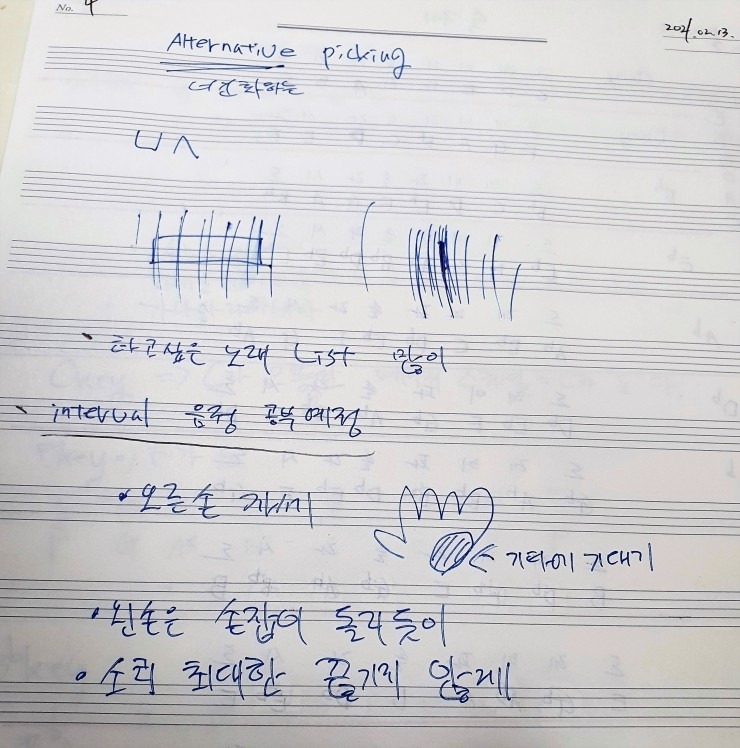 No. 4
2021.02.13.
Alternative picking
ㄷㄱ 변화하는
타고싶은 노래 List 많이
interval 음정 공부예정
오른손 자세
기타에 기대기
왼손은 손잡이 돌리듯이
소리 최대한 끊기지 않게